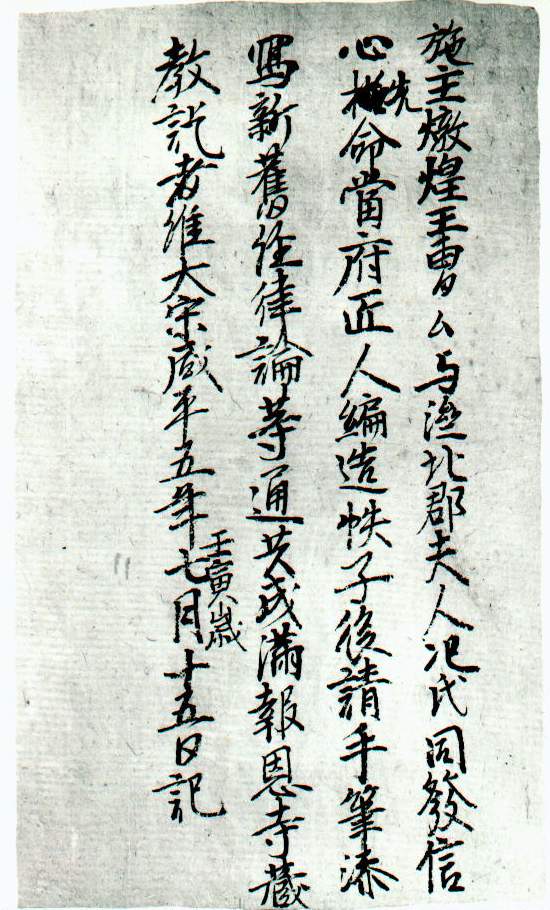 施主燉煌王曹公与濟北郡夫人氾氏同發信
心先命當府匠人編造帙子後請手筆添
寫新舊經律論等通共成滿報恩寺藏
教訖者維大宋咸平五年壬寅歲七月十五日記